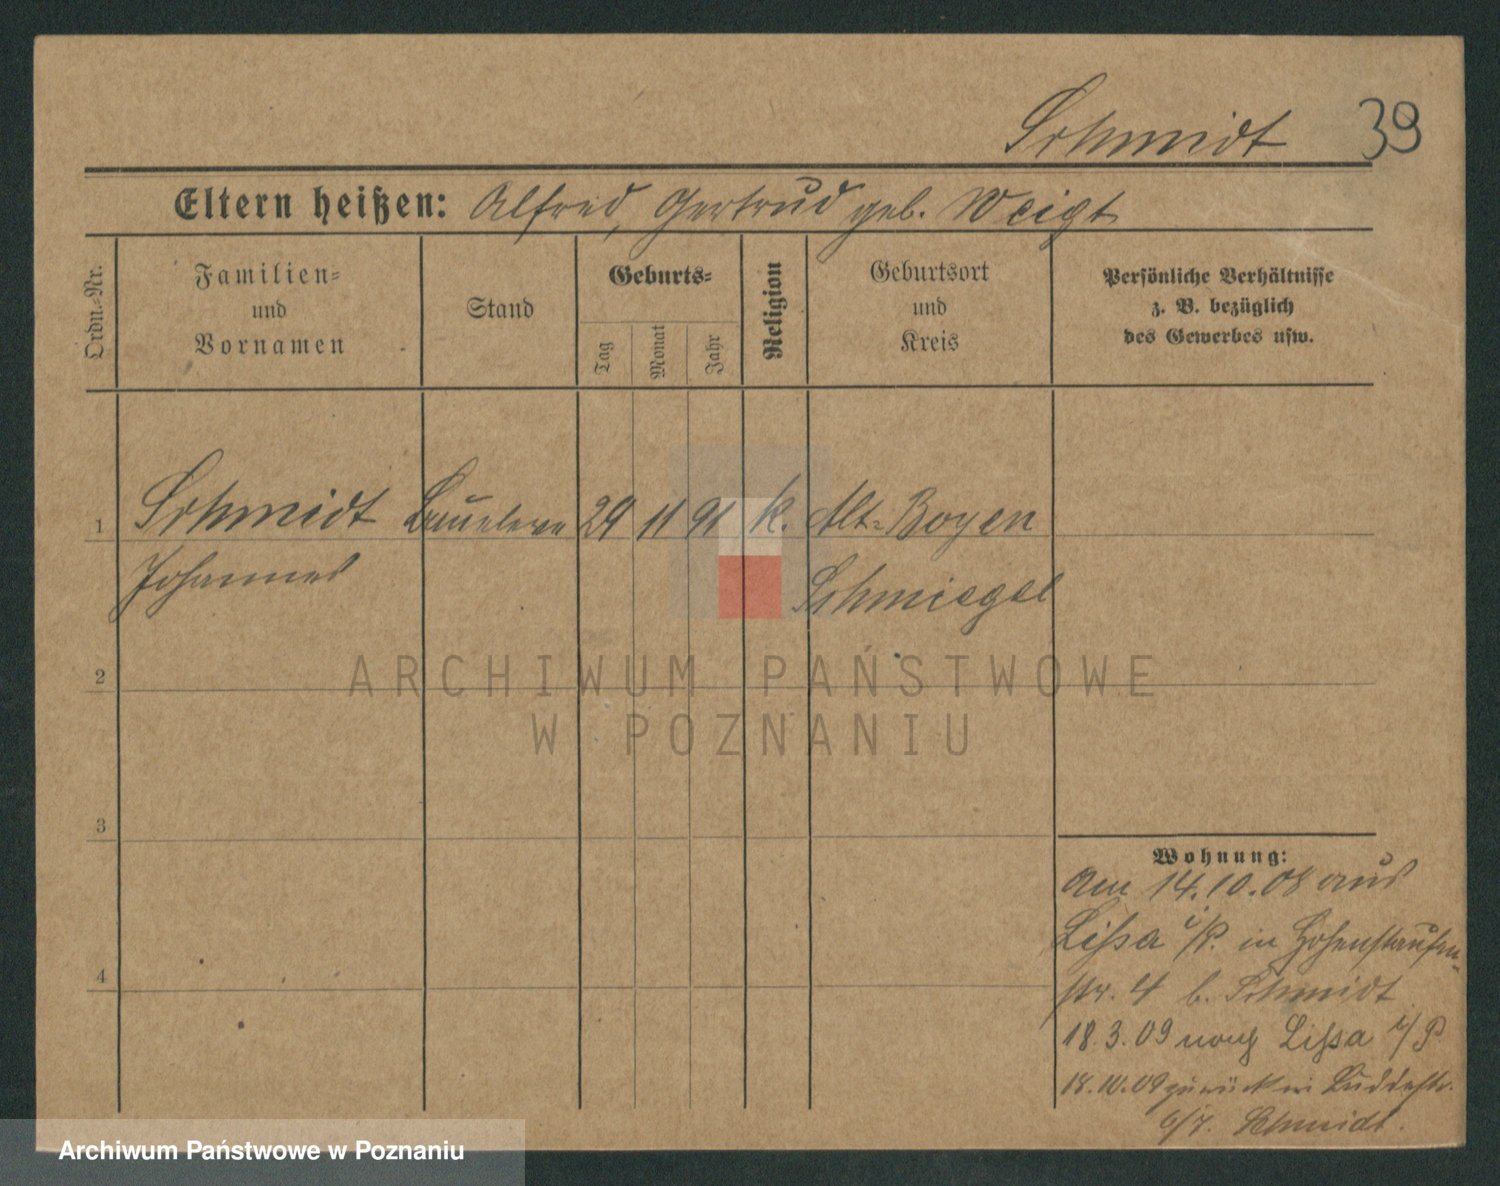 Schmidt 39
Eltern heißen: Alfred, Gertrud geb. Weigt
Ordn.-Nr.
Familien-
und
Vornamen
Stand
Geburts-
Tag
Monat
Jahr
Religion
Geburtsort
und
Kreis
Persönliche Verhältnisse
z. B. bezüglich
des Gewerbes usw.
1 Schmidt 29 11 91 k. Alt-Boyen
Johannes Schmiegel
2
3
4
Wohnung:
Am 14.10.08 aus
Lissa i/P. in Hohenstaufen-
str. 4 b. Schmidt
18.3.09 nach Lissa i/P
18.10.09 zurück in
6/7. Schmidt.
ARCHIWUM PAŃSTWOWE
W POZNANIU
Archiwum Państwowe w Poznaniu